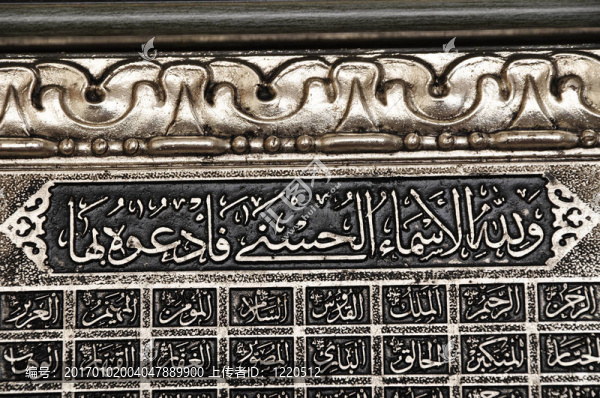 ولله الأسماء الحسنى فادعوه بها
الرحمن الرحيم الملك القدوس السلام المؤمن المهيمن العزيز
الجبار المتكبر الخالق البارئ المصور الغفار القهار الوهاب
编号：20170102004047889900 上传者ID：1220512